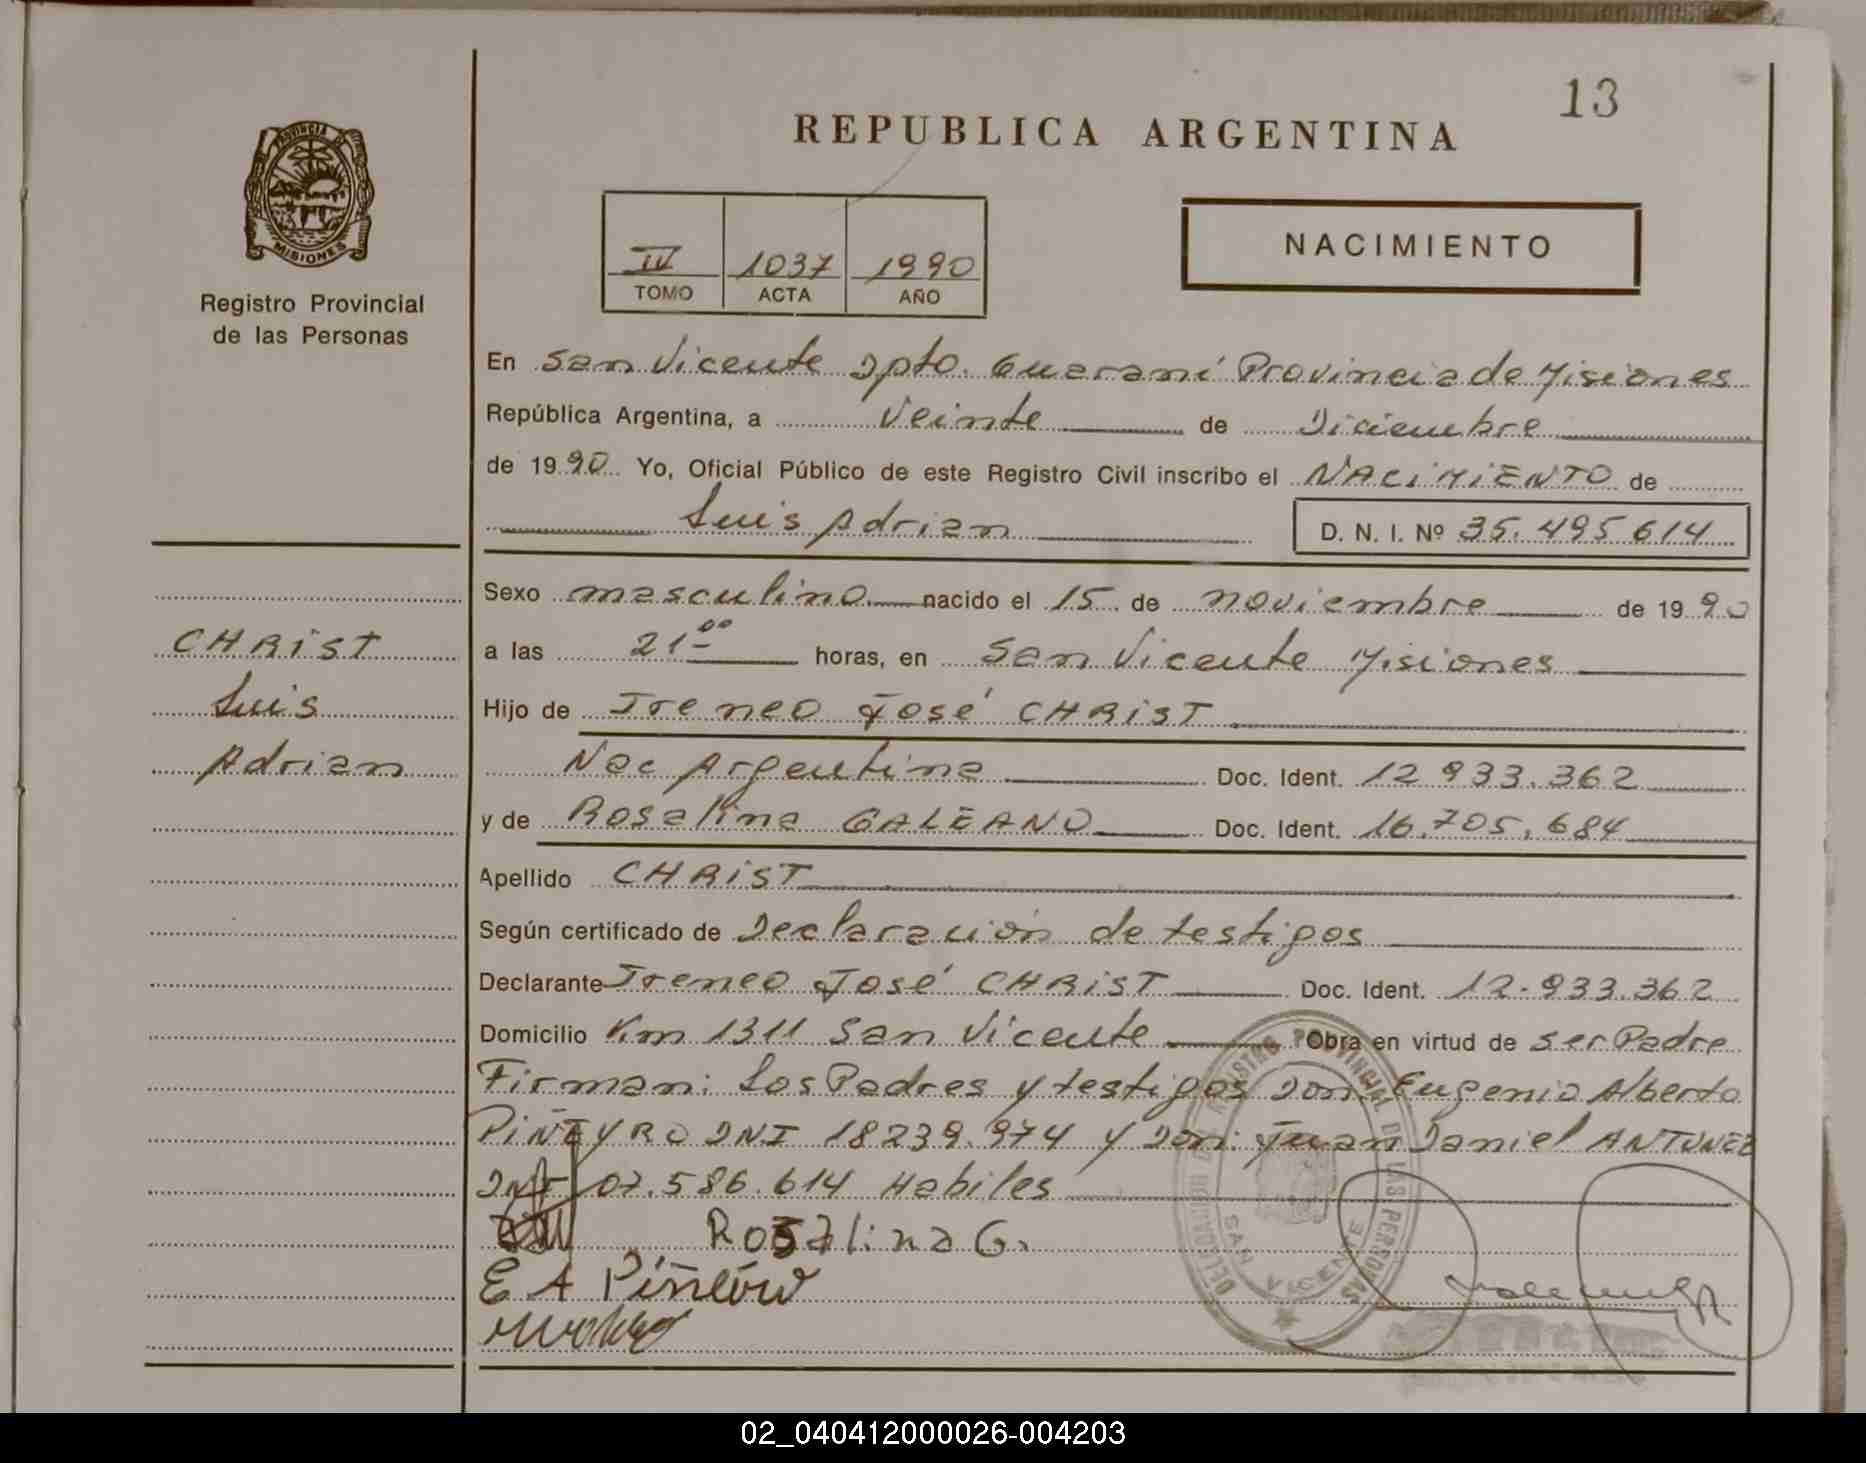 13
REPUBLICA ARGENTINA
PROVINCIA DE MISIONES
Registro Provincial
de las Personas
IV 1037 1990
TOMO ACTA AÑO
NACIMIENTO
En San Vicente Dpto. Guaraní Provincia de Misiones
República Argentina, a Veinte de Diciembre
de 1990 Yo, Oficial Público de este Registro Civil inscribo el NACIMIENTO de
Luis Adrian D. N. I. Nº 35.495614
Sexo masculino nacido el 15 de noviembre de 1990
CHRIST
Luis
Adrian
a las 21 00 horas, en San Vicente Misiones
Hijo de Ireneo José CHRIST
Nac Argentina Doc. Ident. 12 933.362
y de Rosalina GALEANO Doc. Ident. 16.705.684
Apellido CHRIST
Según certificado de Declaración de testigos
Declarante Ireneo José CHRIST Doc. Ident. 12.933.362
Domicilio Km 1311 San Vicente Obra en virtud de ser Padre
Firman: Los Padres y testigos Don: Eugenio Alberto
PIÑEYRO DNI 18239.974 y Don: Juan Daniel ANTUNEZ
DNI 07.586.614 Habiles
Rosalina G.
E A
REGISTRO PROVINCIAL DE LAS PERSONAS
SAN VICENTE
02_040412000026-004203